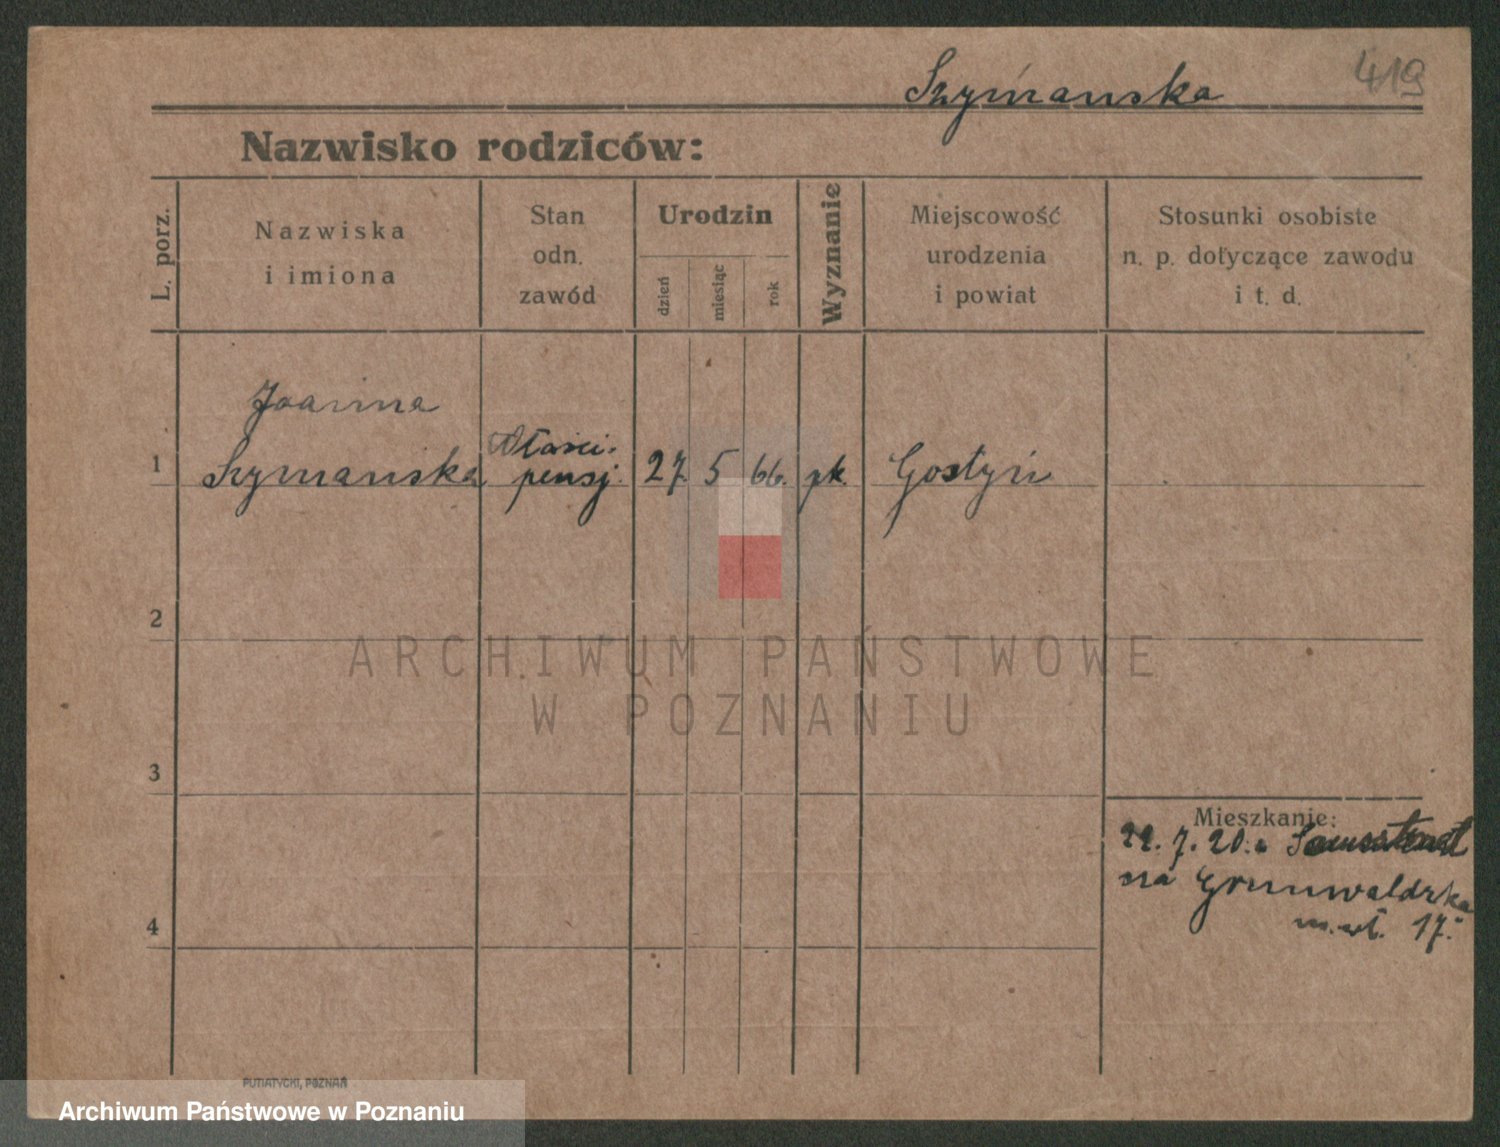 419
Szymańska
Nazwisko rodziców:
L. porz.
Nazwiska
i imiona
Stan
odn.
zawód
Urodzin
dzień
miesiąc
rok
Wyznanie
Miejscowość
urodzenia
i powiat
Stosunki osobiste
n. p. dotyczące zawodu
i t. d.
Joanna
Właści.
1 Szymańska pensj. 27. 5 66. rk. Gostyń
2
ARCHIWUM PAŃSTWOWE
W POZNANIU
3
Mieszkanie:
22. 7. 20.
na Grunwaldzka
m. wł. 17.
4
PUTIATYCKI, POZNAŃ
Archiwum Państwowe w Poznaniu